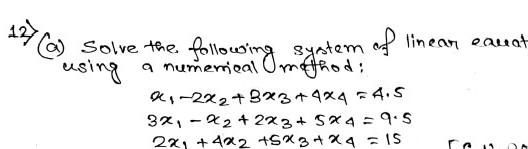 12) (a) Solve the following system of linear equat
using a numerical method:
x₁ - 2x₂ + 3x₃ + 4x₄ = 4.5
3x₁ - x₂ + 2x₃ + 5x₄ = 9.5
2x₁ + 4x₂ + 5x₃ + x₄ = 15